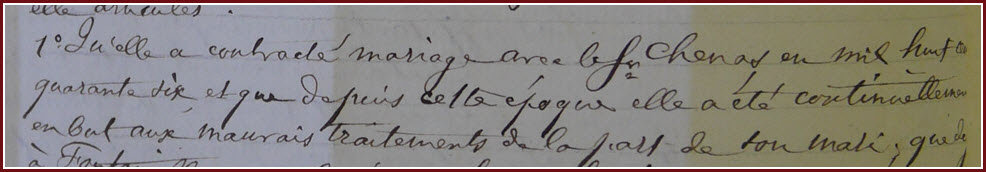 elle articulés.
1° Qu'elle a contracté mariage avec le Sr Chenas en mil huit
quarante six et que depuis cette époque elle a été continuellemen
en but aux mauvais traitements de la part de son mari ; que
à